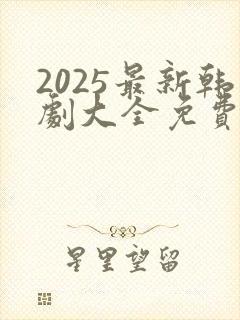 2025最新韩
劇大全免費
星里望留